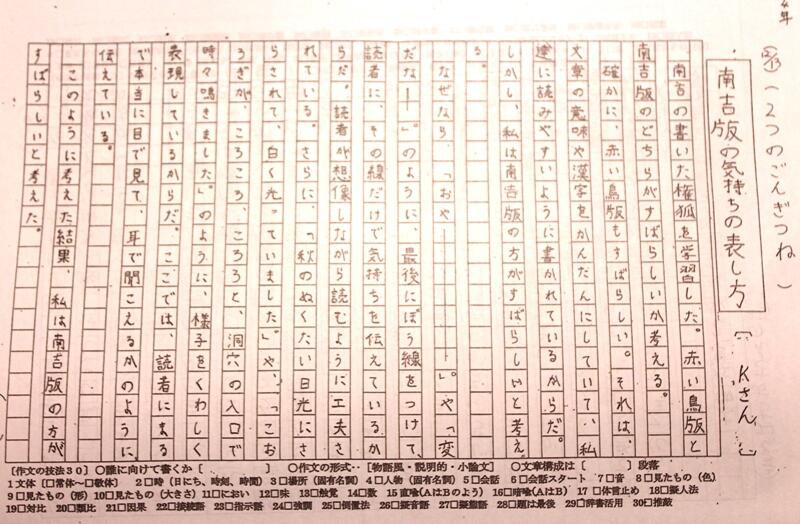 4年
㉙(2つのごんぎつね)
南吉版の気持ちの表し方
Kさん
南吉の書いた権狐を学習した。赤い鳥版と
南吉版のどちらがすばらしいか考える。
確かに、赤い鳥版もすばらしい。それは、
文章の意味や漢字をかんたんにしていて、私
達に読みやすいように書かれているからだ。
しかし、私は南吉版の方がすばらしいと考え
る。
なぜなら、「おや――――――――」。や「変
だな――」。のように、最後にぼう線をつけて、
読者に、その線だけで気持ちを伝えているか
らだ。読者が想像しながら読むように工夫さ
れている。さらに、「秋のぬくたい日光にさ
らされて、白く光っていました」や、「こお
ろぎが、ころころ、ころろと、洞穴の入口で
時々鳴きました」。のように、様子をくわしく
表現しているからだ。ここでは、読者にまる
で本当に目で見て、耳で聞こえるかのように、
伝えている。
このように考えた結果、私は南吉版の方が
すばらしいと考えた。
[作文の技法30] 〇誰に向けて書くか[ ] 〇作文の形式‥[物語風・説明的・小論文] 〇文章構成は[ ]段落
1文体[□常体~□敬体] 2□時(日にち、時刻、時間) 3□場所(固有名詞) 4□人物(固有名詞) 5□会話 6□会話スタート 7□音 8□見たもの(色)
9□見たもの(形) 10□見たもの(大きさ) 11□におい 12□味 13□触覚 14□数 15直喩(AはBのよう) 16□暗喩(AはB) 17 □体言止め 18□擬人法
19□対比 20□類比 21□因果 22□接続語 23□指示語 24□強調 25□倒置法 26□擬音語 27□擬態語 28□題は最後 29□辞書活用 30□推敲